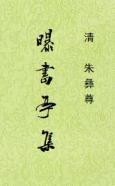 清 朱彝尊
曝書亭集